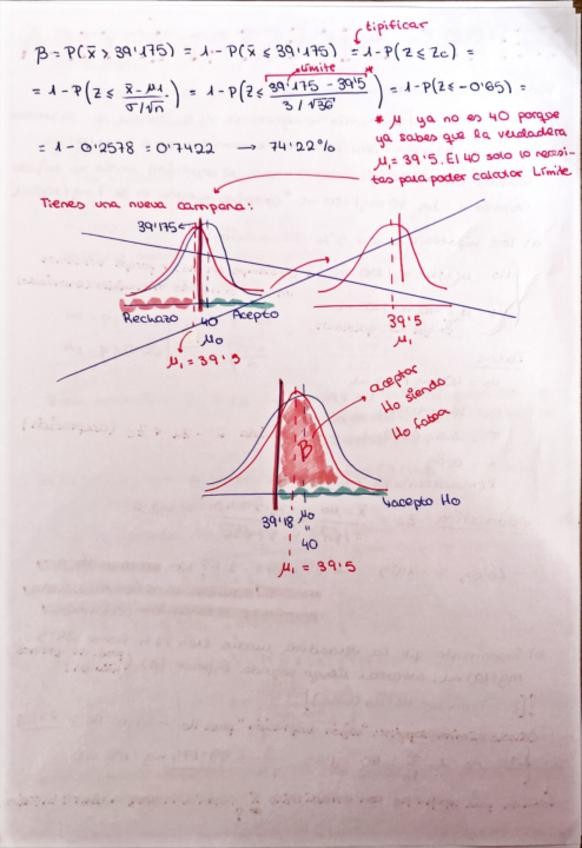 tipificar
β = P(x̄ > 39'175) = 1 - P(x̄ ≤ 39'175) = 1 - P(z ≤ zc) =
límite
= 1 - P(z ≤ x̄ - μ1 / σ/√n) = 1 - P(z ≤ 39'175 - 39'5 / 3/√36)* = 1 - P(z ≤ -0'65) =
* μ ya no es 40 porque
ya sabes que la verdadera
= 1 - 0'2578 = 0'7422 → 74'22%
μ1 = 39'5. El 40 solo lo necesi-
tas para poder calcular Límite.
Tienes una nueva campana:
39'175
Rechazo 40 Acepto
μ0
μ1 = 39'5
39'5
μ1
aceptar
H0 siendo
H0 falsa
β
acepto H0
39'18 μ0
"
40
μ1 = 39'5